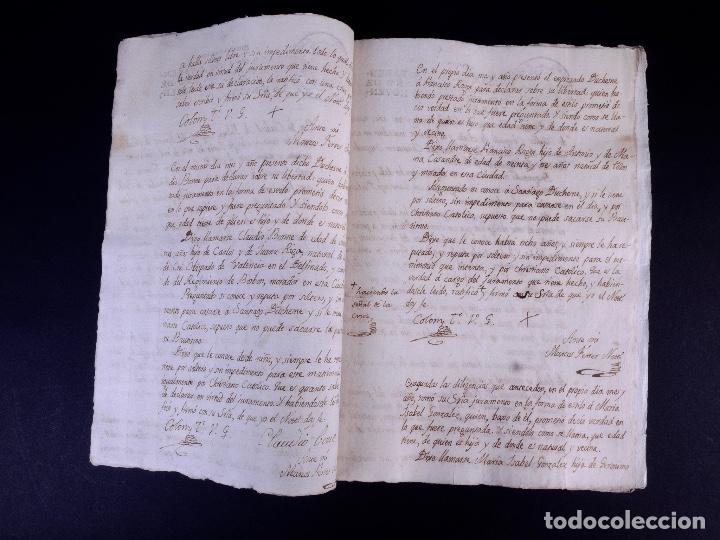 se halla
y sin impedimento todo lo qual
la verdad en virtud del juramento que tiene hecho, y
leida esta su declaración, la ratificó con una cruz
saber escribir y firmó su Sría. de que yo el Not.
Colom, Tte. V. G. +
Ante mi
Marcos
En el mismo dia mes y año presentó dicho Ducherne á
para declarar sobre su libertad: quien
juramento en la forma de estilo prometió decir
en lo que supiere y fuere preguntado. Y siendolo como
que edad tiene de quien es hijo y de donde es natural
Dijo llamarse Claudio Bonne de edad de
años hijo de Carlos y de Juana Rigo, natural de
de Obispado de Valencia en el Delfinado,
del Regimiento de Borbon, morador en esta Ciudad
Preguntado si conoce y reputa por soltero, y sin
mento para casarse á Santiago Ducherne y si le
tiano Católico, supuesto que no puede sacarse la
Dijo que le conoce desde niño, y siempre le ha
por soltero y sin impedimento para este matrimonio
igualmente por Christiano Católico. Que es quanto sabe
de declarar en virtud del juramento. Y habiendosele
y firmó con su Sría, de que yo el Not. doy fe.
Colom, Tte. V. G.
Claudio
Ante mi
Marcos
+ haciendo la
señal de la
cruz.
En el propio dia, mes y año presentó el expresado Ducherne
á Francisco Roger para declarar sobre su libertad: quien ha
biendo prestado juramento en la forma de estilo prometió de
cir verdad en lo que fuere preguntado. Y siendo como se lla
ma de quien es hijo que edad tiene y de donde es natural
y vecino.
Dijo llamarse Francisco Roger hijo de Antonio y de Ma
ria de edad de treinta y años natural de
y morador en esta Ciudad.
Preguntado si conoce á Santiago Ducherne, y si le tiene
por soltero, sin impedimento para casarse en el dia, y por
Christiano Católico, supuesto que no puede sacarse su Bau
tismo.
Dijo que le conoce habra ocho años, y siempre le ha re
putado, y reputa por soltero y sin impedimento para el ma
trimonio que intenta, y por Christiano Católico. Que es la
verdad á cargo del Juramento que tiene hecho, y habien
dosele leido, ratificó + y firmó su Sría. de que yo el Not.
doy fe.
Colom, Tte. V. G. +
Ante mi
Marcos Ferrer Not.
Evaquadas las diligencias que anteceden, en el propio dia mes y
año, tomó su Sría. juramento en la forma de estilo á Maria
Isabel Gonzalez, quien, baxo de él, prometió decir verdad en
lo que fuere preguntada. Y siendolo como se llama, que edad
tiene, de quien es hija y de donde es natural y vecina.
Dijo llamarse Maria Isabel Gonzalez hija de Geronimo
todocoleccion.net